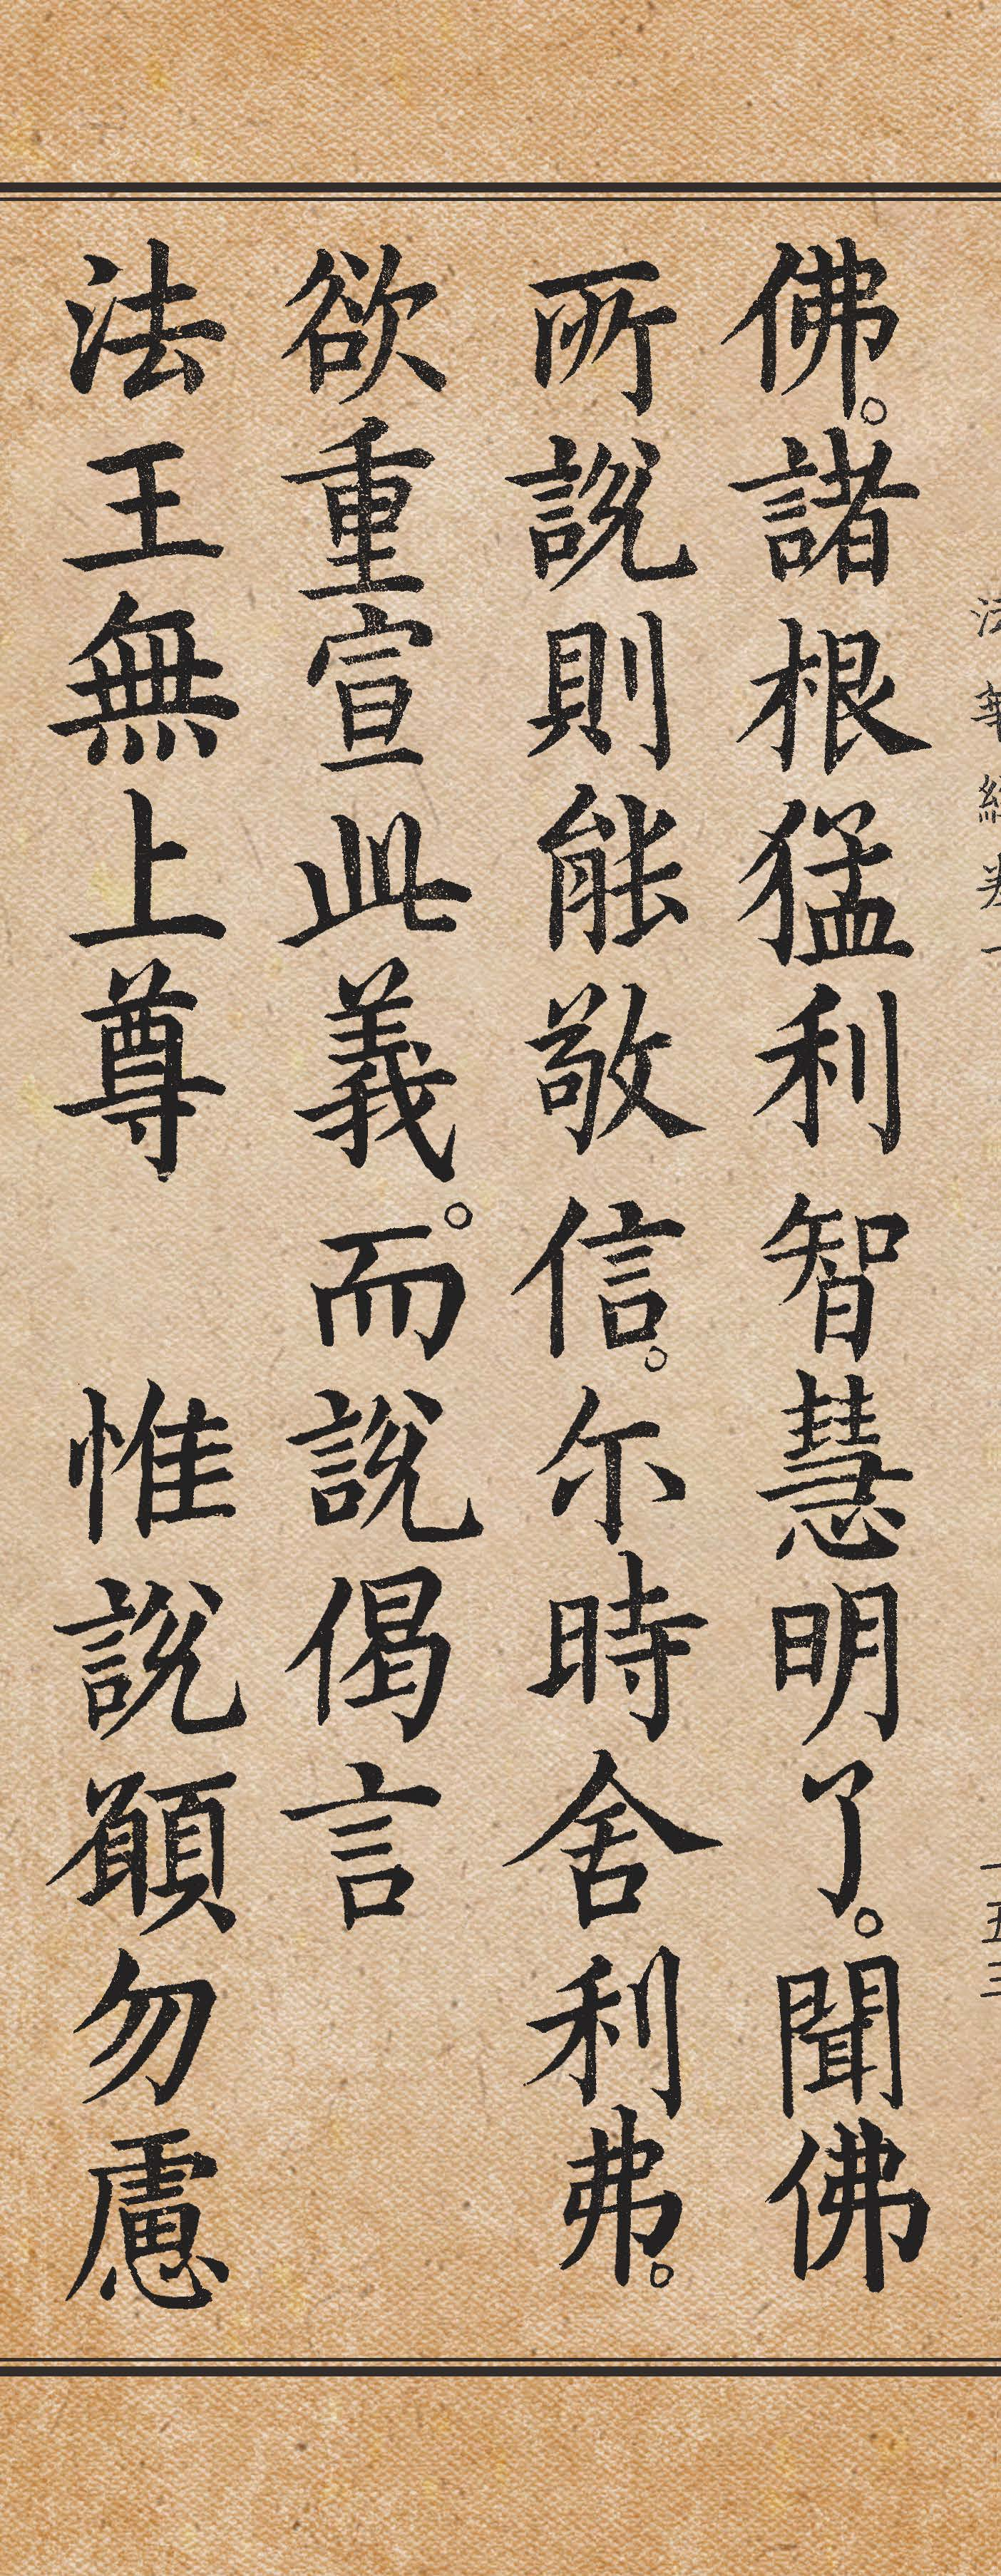 法華經卷一 一五三
佛。諸根猛利智慧明了。聞佛
所說則能敬信。尒時舍利弗。
欲重宣此義。而說偈言
法王無上尊 惟說願勿慮